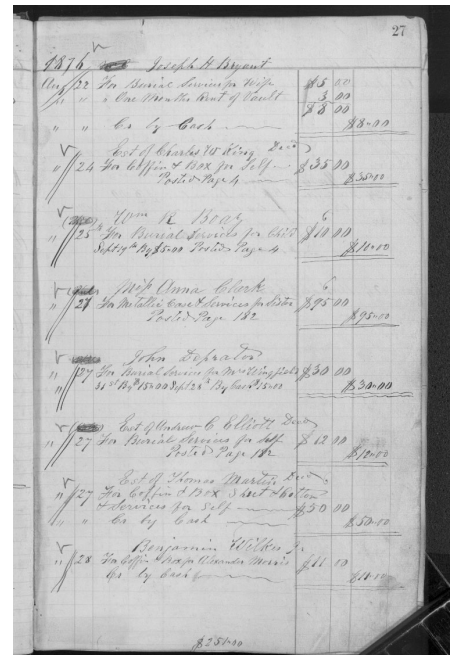 27
1876 Joseph H Bryant
Aug 22 For Burial Services for Wife $5 00
" " " One Months Rent of Vault 3 00
$8 00
" " Cr by Cash $8=00
Est of Charles W King Decd
" 24 For Coffin & Box for Self $35 00
Posted Page 4 $35=00
Wm R Boaz
" 25 For Burial Services for Child $10 00
Sept 19th By $5=00 Posted Page 4 $10=00
Miss Anna Clark
" 27 For Metallic Case & Services for Sister $95 00
Posted Page 182 $95=00
John
" 27 For Burial Services for Mrs Wingfield $30 00
" 31st By $15=00 Sept 28th By Cash $15=00 $30=00
Est of Andrew C Elliott Decd
" 27 For Burial Services for Self $12 00
Posted Page 182 $12=00
Est of Thomas Martin Decd
" 27 For Coffin & Box Sheet & Cotton
& Services for Self $50 00
" " Cr by Cash $50=00
Benjamin Wilkes
" 28 For Coffin & Box for Alexander Morris $11 00
Cr by Cash $11=00
$251=00